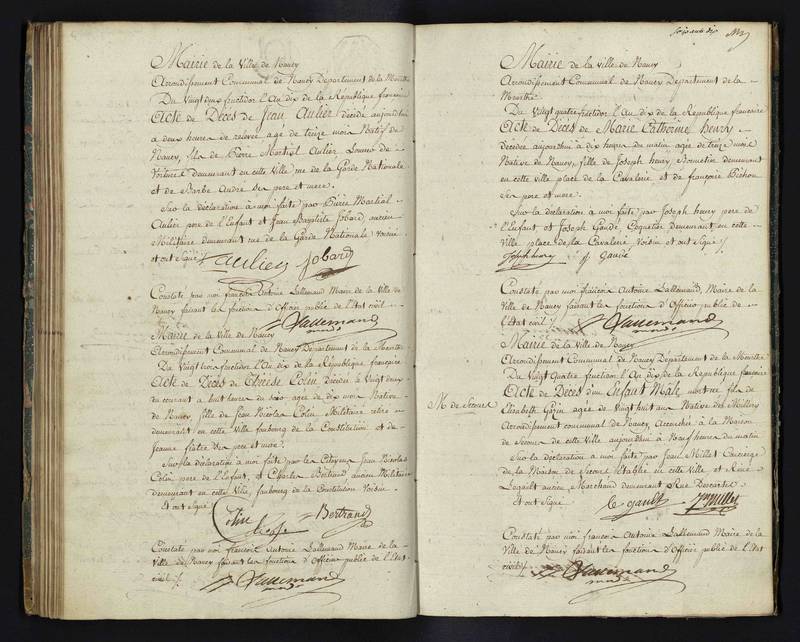 Mairie de la Ville de Nancy
Arrondissement Communal de Nancy Departement de la Meurthe
Du Vingt deux fructidor l'An dix de la République française
Acte de Décès de Jean Aulier décédé aujourd'hui
a deux heures de relevée age de treize mois Natif de
Nancy, fils de Pierre Martial Aulier Loueur de
Voiture demeurant en cette Ville rue de la Garde Nationale
et de Barbe André ses pere et mere.
Sur la déclaration à moi faite par Pierre Martial
Aulier pere de l'Enfant et Jean Baptiste Jobard ancien
Militaire demeurant rue de la Garde Nationale Voisin
et ont signé
aulier Jobard
Constaté par moi françois Antoine Lallemand Maire de la Ville
de Nancy faisant les fonctions d'Officier public de l'Etat civil
Lallemand
Mairie de la Ville de Nancy
Arrondissement Communal de Nancy Departement de la Meurthe
Du Vingt trois fructidor l'An dix de la République française
Acte de Décès de Therese Colin décédée le Vingt deux
du courant a huit heures du soir agée de dix mois Native
de Nancy, fille de Jean Nicolas Colin Militaire retiré
demeurant en cette Ville faubourg de la Constitution et de
Jeanne ses pere et mere.
Sur la déclaration à moi faite par les Citoyens Jean Nicolas
Colin pere de l'Enfant, et Charles Bertrand ancien Militaire
demeurant en cette Ville, faubourg de la Constitution Voisin
et ont signé
Colin Bertrand
Constaté par moi françois Antoine Lallemand Maire de la
Ville de Nancy faisant les fonctions d'Officier public de l'Etat
civil
Lallemand
Mairie de la Ville de Nancy
Arrondissement Communal de Nancy Departement de la
Meurthe
Du Vingt quatre fructidor l'An dix de la République française
Acte de Décès de Marie Catherine henry
Décédée aujourd'hui à dix heures du matin agée de treize mois
Native de Nancy, fille de Joseph henry Bonnetier demeurant
en cette ville place de la Cavalerie et de françoise Bichon
ses pere et mere.
Sur la déclaration à moi faite par Joseph henry pere de
l'Enfant et Joseph Gaude, Coquetier demeurant en cette
Ville place de la Cavalerie Voisin et ont signé
Joseph henry J gaude
Constaté par moi françois Antoine Lallemand, Maire de la
Ville de Nancy faisant les fonctions d'Officier public de
l'Etat civil
Lallemand
Mairie de la Ville de Nancy
Arrondissement Communal de Nancy Departement de la Meurthe
Du Vingt Quatre fructidor l'An dix de la République française
M de Secours
Acte de Décès d'un Enfant Mâle mort né fils de
Elisabeth agée de vingt huit ans Native de Millery
Arrondissement communal de Nancy, Accouchée à la Maison
de Secours de cette Ville aujourd'hui à Neuf heures du matin
Sur la déclaration à moi faite par Jean Millet Concierge
de la Maison de Secours établie en cette Ville et René
Legault ancien Marchand demeurant Rue Descartes
et ont signé
le gault Jn Millet
Constaté par moi françois Antoine Lallemand Maire de la
Ville de Nancy faisant les fonctions d'Officier public de l'Etat
civil
Lallemand